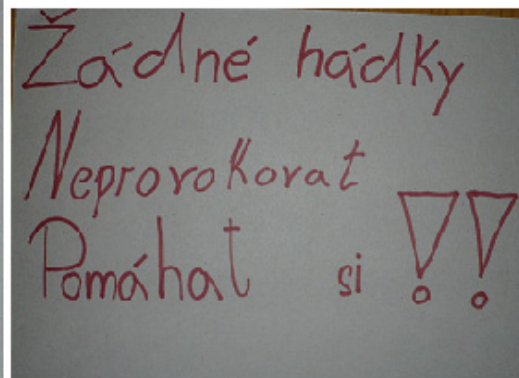 Žádné hádky
Neprovokovat
Pomáhat si !!